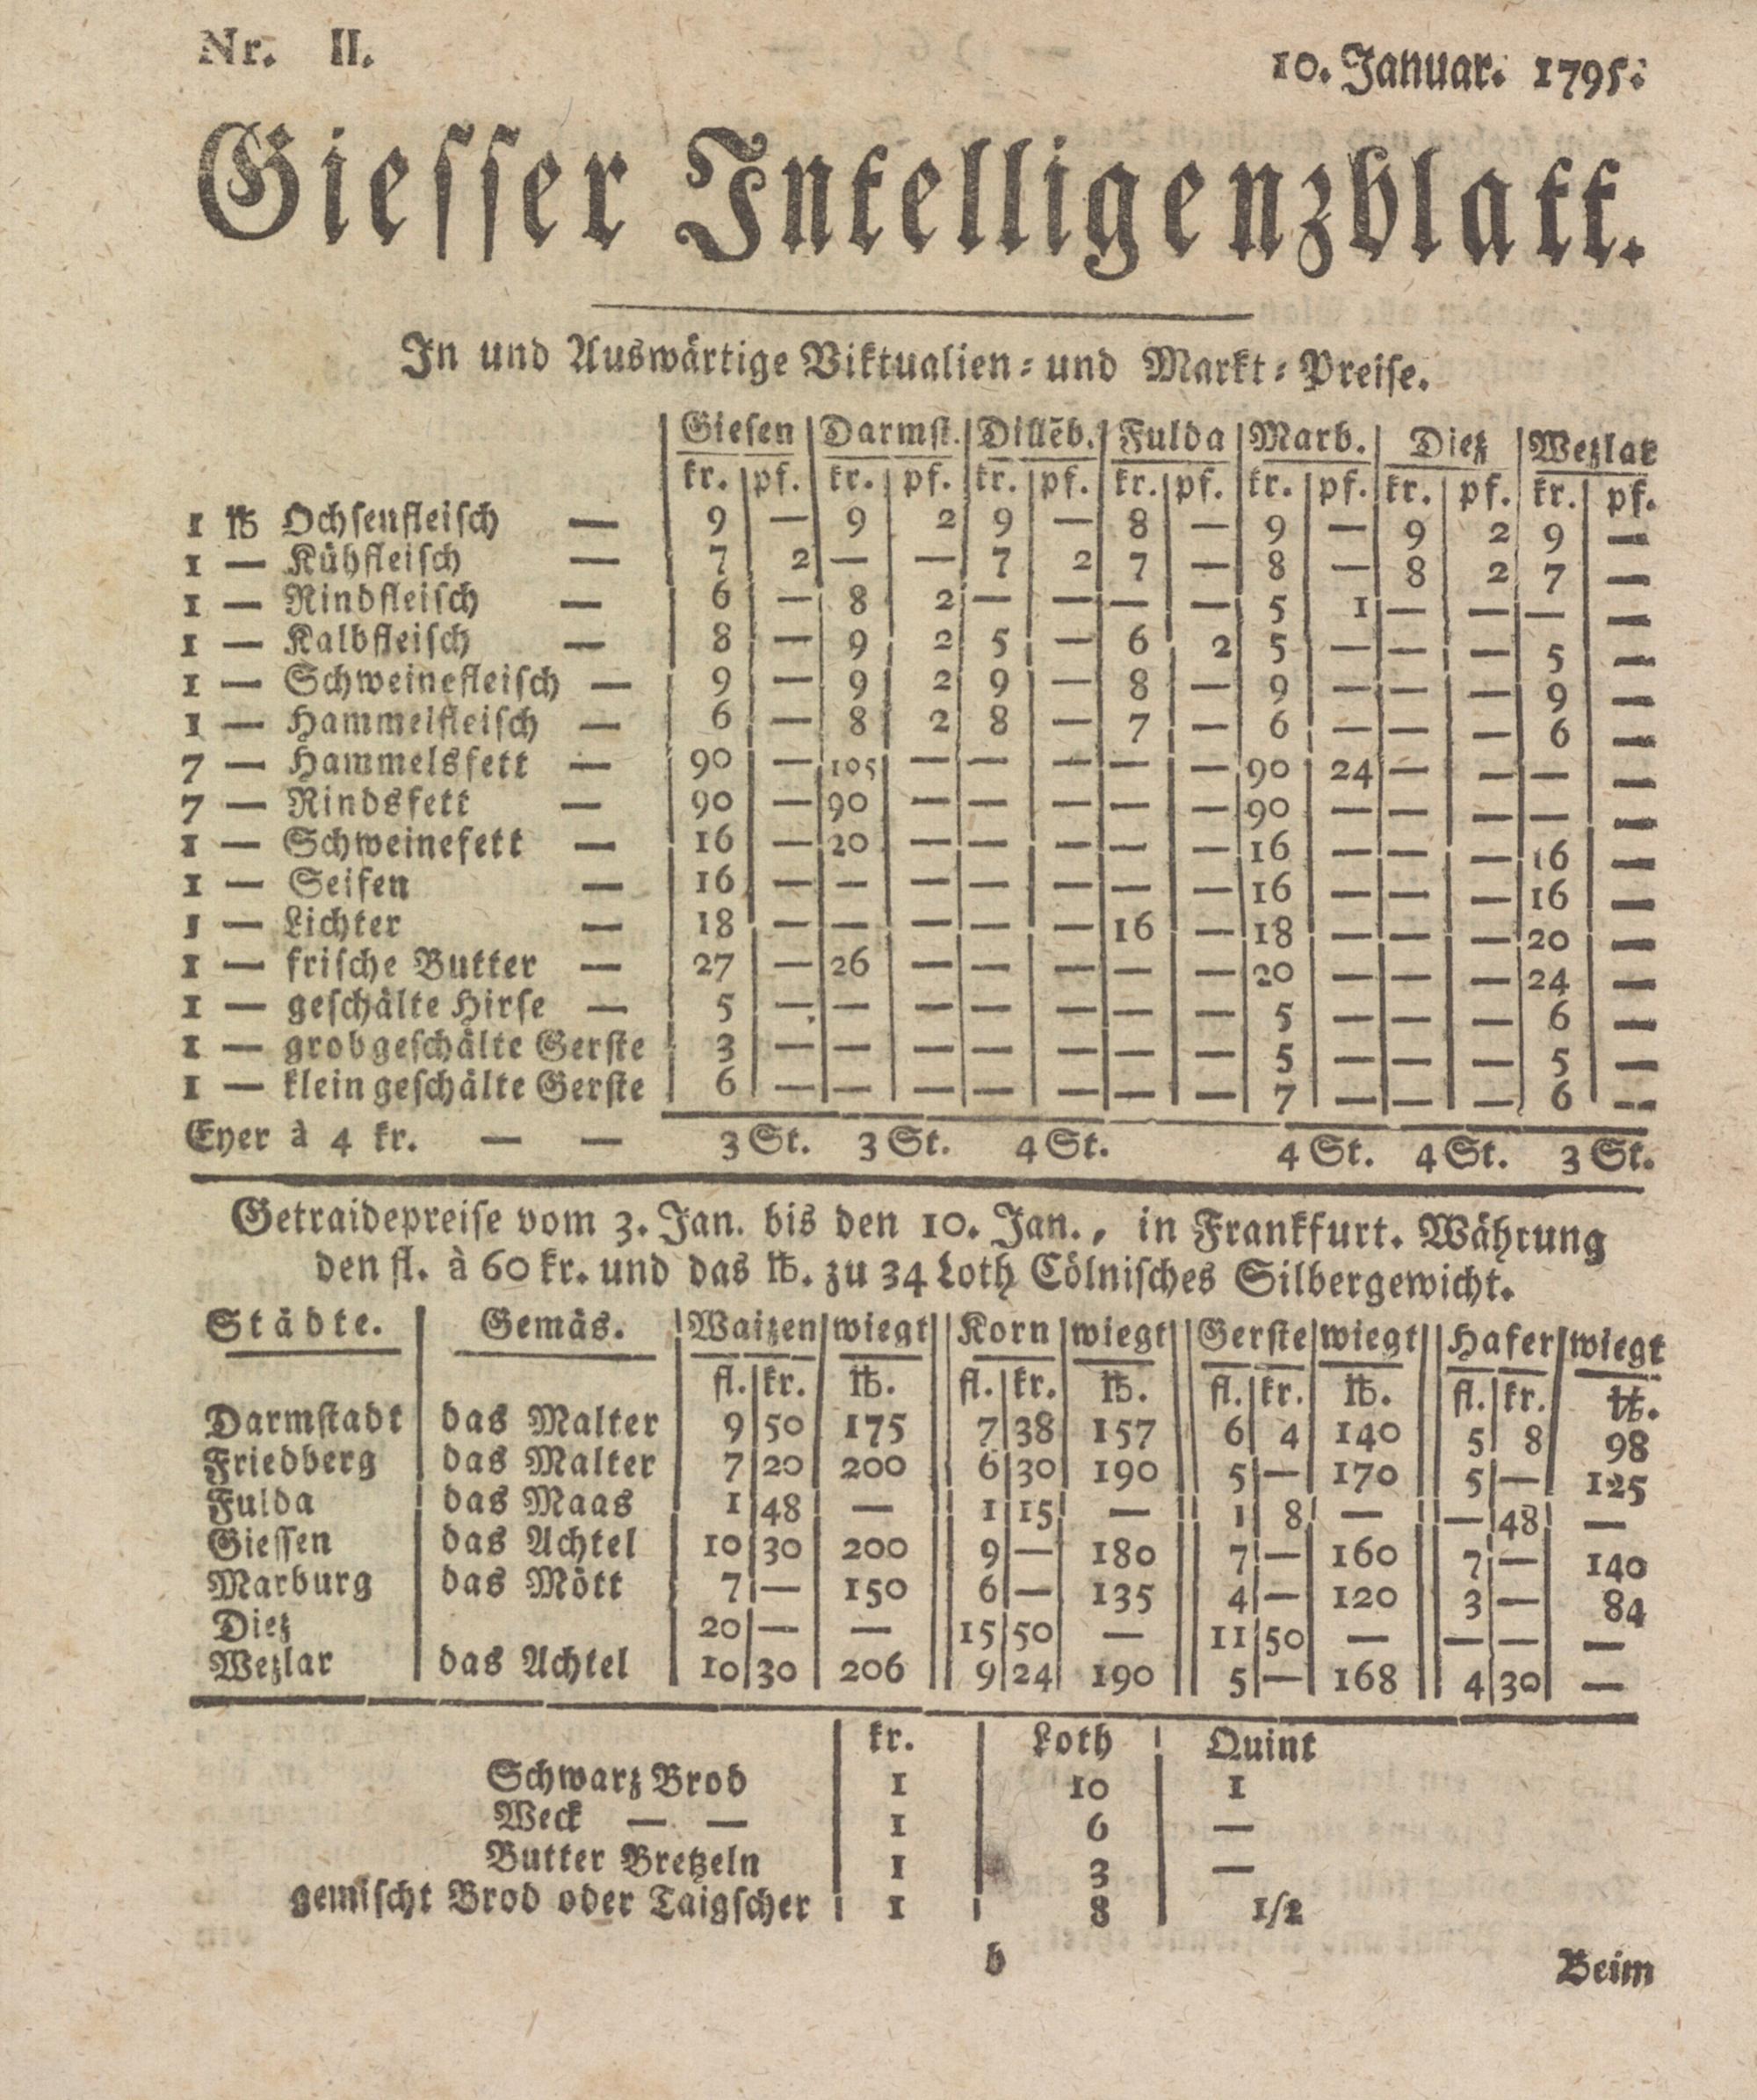 Nr. II. 10. Januar. 1795.
Giesser Intelligenzblatt.
In und Auswärtige Viktualien- und Markt-Preise.
Giesen Darmst. Dillēb. Fulda Marb. Diez Wezlar
kr. pf. kr. pf. kr. pf. kr. pf. kr. pf. kr. pf. kr. pf.
1 ℔ Ochsenfleisch — 9 — 9 2 9 — 8 — 9 — 9 2 9 —
1 — Kühfleisch — 7 2 — — 7 2 7 — 8 — 8 2 7 —
1 — Rindfleisch — 6 — 8 2 — — — — 5 1 — — — —
1 — Kalbfleisch — 8 — 9 2 5 — 6 2 5 — — — 5 —
1 — Schweinefleisch — 9 — 9 2 9 — 8 — 9 — — — 9 —
1 — Hammelfleisch — 6 — 8 2 8 — 7 — 6 — — — 6 —
7 — Hammelsfett — 90 — 105 — — — — — 90 24 — — — —
7 — Rindsfett — 90 — 90 — — — — — 90 — — — — —
1 — Schweinefett — 16 — 20 — — — — — 16 — — — 16 —
1 — Seifen — 16 — — — — — — — 16 — — — 16 —
1 — Lichter — 18 — — — — — 16 — 18 — — — 20 —
1 — frische Butter — 27 — 26 — — — — — 20 — — — 24 —
1 — geschälte Hirse — 5 — — — — — — — 5 — — — 6 —
1 — grobgeschälte Gerste 3 — — — — — — — 5 — — — 5 —
1 — klein geschälte Gerste 6 — — — — — — — 7 — — — 6 —
Eyer à 4 kr. — — 3 St. 3 St. 4 St. 4 St. 4 St. 3 St.
Getraidepreise vom 3. Jan. bis den 10. Jan., in Frankfurt. Währung
den fl. à 60 kr. und das ℔. zu 34 Loth Cölnisches Silbergewicht.
Städte. Gemäs. Waizen wiegt Korn wiegt Gerste wiegt Hafer wiegt
fl. kr. ℔. fl. kr. ℔. fl. kr. ℔. fl. kr. ℔.
Darmstadt das Malter 9 50 175 7 38 157 6 4 140 5 8 98
Friedberg das Malter 7 20 200 6 30 190 5 — 170 5 — 125
Fulda das Maas 1 48 — 1 15 — 1 8 — — 48 —
Giessen das Achtel 10 30 200 9 — 180 7 — 160 7 — 140
Marburg das Mött 7 — 150 6 — 135 4 — 120 3 — 84
Diez 20 — — 15 50 — 11 50 — — — —
Wezlar das Achtel 10 30 206 9 24 190 5 — 168 4 30 —
kr. Loth Quint
Schwarz Brod 1 10 1
Weck — — 1 6 —
Butter Bretzeln 1 3 —
gemischt Brod oder Taigscher 1 8 1/2
b Beim